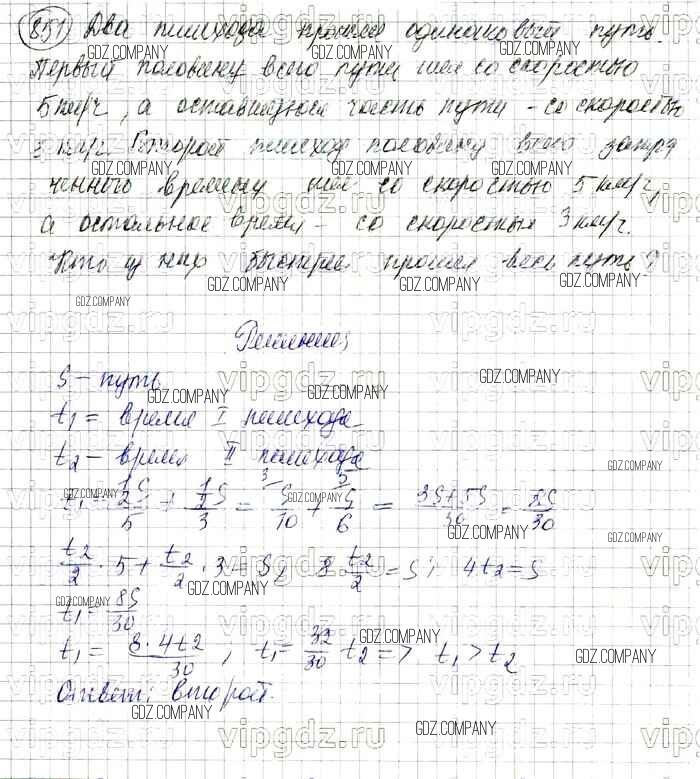 851) Два пешехода прошли одинаковый путь.
Первый половину всего пути шёл со скоростью
5 км/ч, а оставшуюся часть пути - со скоростью
3 км/ч. Второй пешеход половину всего затра
ченного времени шёл со скоростью 5 км/ч,
а остальное время - со скоростью 3 км/ч.
Кто из них быстрее прошёл весь путь?
Решение:
S - путь
t₁ = время I пешехода
t₂ - время II пешехода
t₁ = ½S/5 + ½S/3 = S/10 + S/6 = 3S+5S/30 = 8S/30
t₂/2 · 5 + t₂/2 · 3 = S; 8 t₂/2 = S; 4t₂ = S
t₁ = 8S/30
t₁ = 8·4t₂/30, t₁ = 32/30 t₂ => t₁ > t₂
Ответ: второй.
GDZ.COMPANY
vipgdz.ru